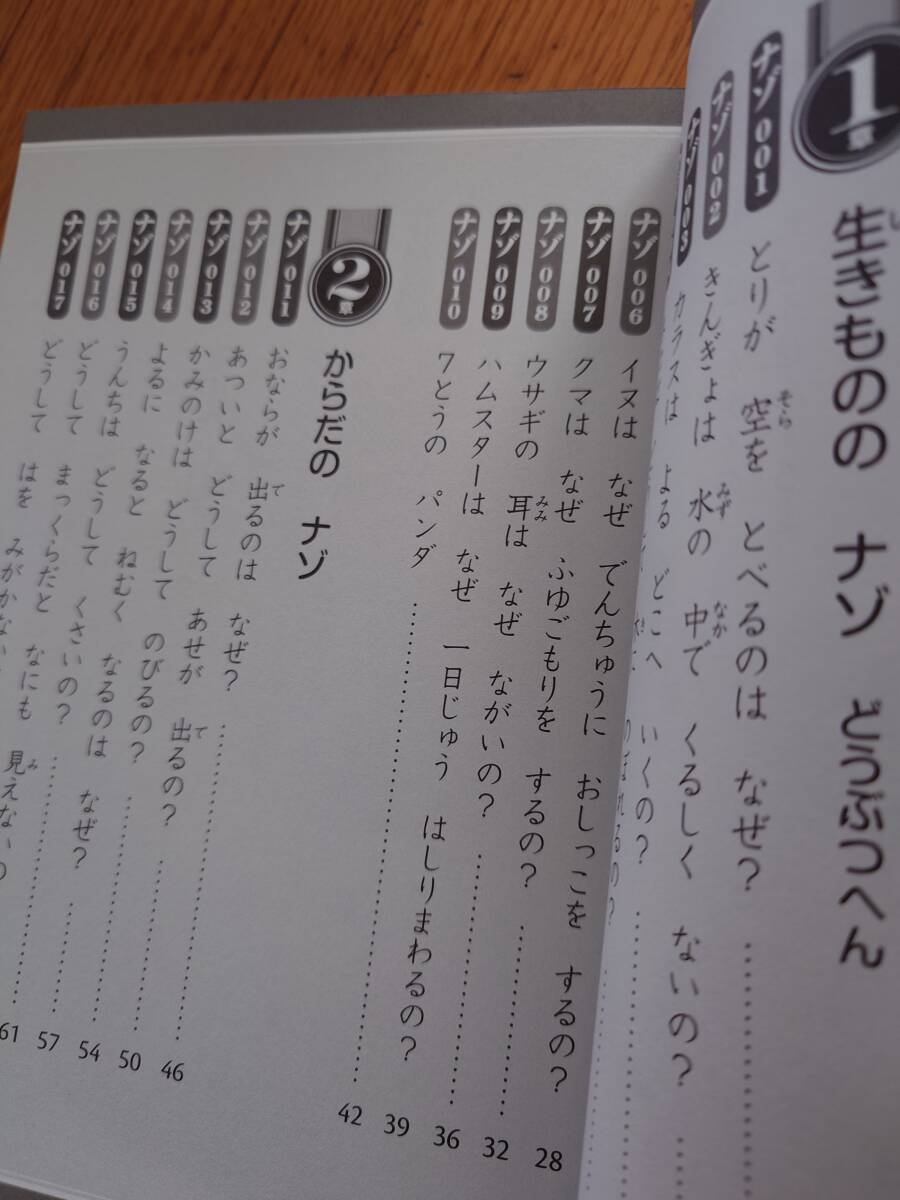 1章 生きものの ナゾ どうぶつへん
ナゾ001 とりが 空を とべるのは なぜ?
ナゾ002 きんぎょは 水の 中で くるしく ないの?
ナゾ003 カラスは よる どこへ いくの?
ナゾ006 イヌは なぜ でんちゅうに おしっこを するの? 28
ナゾ007 クマは なぜ ふゆごもりを するの? 32
ナゾ008 ウサギの 耳は なぜ ながいの? 36
ナゾ009 ハムスターは なぜ 一日じゅう はしりまわるの? 39
ナゾ010 7とうの パンダ 42
2章 からだの ナゾ
ナゾ011 おならが 出るのは なぜ? 46
ナゾ012 あついと どうして あせが 出るの? 50
ナゾ013 かみのけは どうして のびるの? 54
ナゾ014 よるに なると ねむく なるのは なぜ? 57
ナゾ015 うんちは どうして くさいの? 61
ナゾ016 どうして まっくらだと なにも 見えないの
ナゾ017 どうして はを みがかない